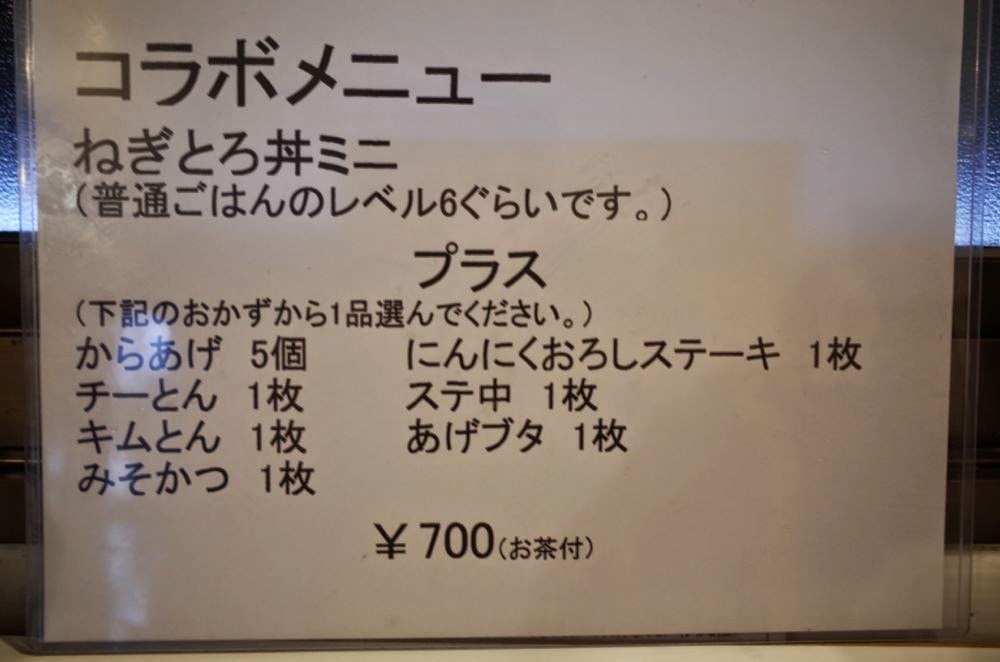 コラボメニュー
ねぎとろ丼ミニ
（普通ごはんのレベル6ぐらいです。）
プラス
（下記のおかずから1品選んでください。）
からあげ　5個　　にんにくおろしステーキ　1枚
チーとん　1枚　　ステ中　1枚
キムとん　1枚　　あげブタ　1枚
みそかつ　1枚
￥700（お茶付）